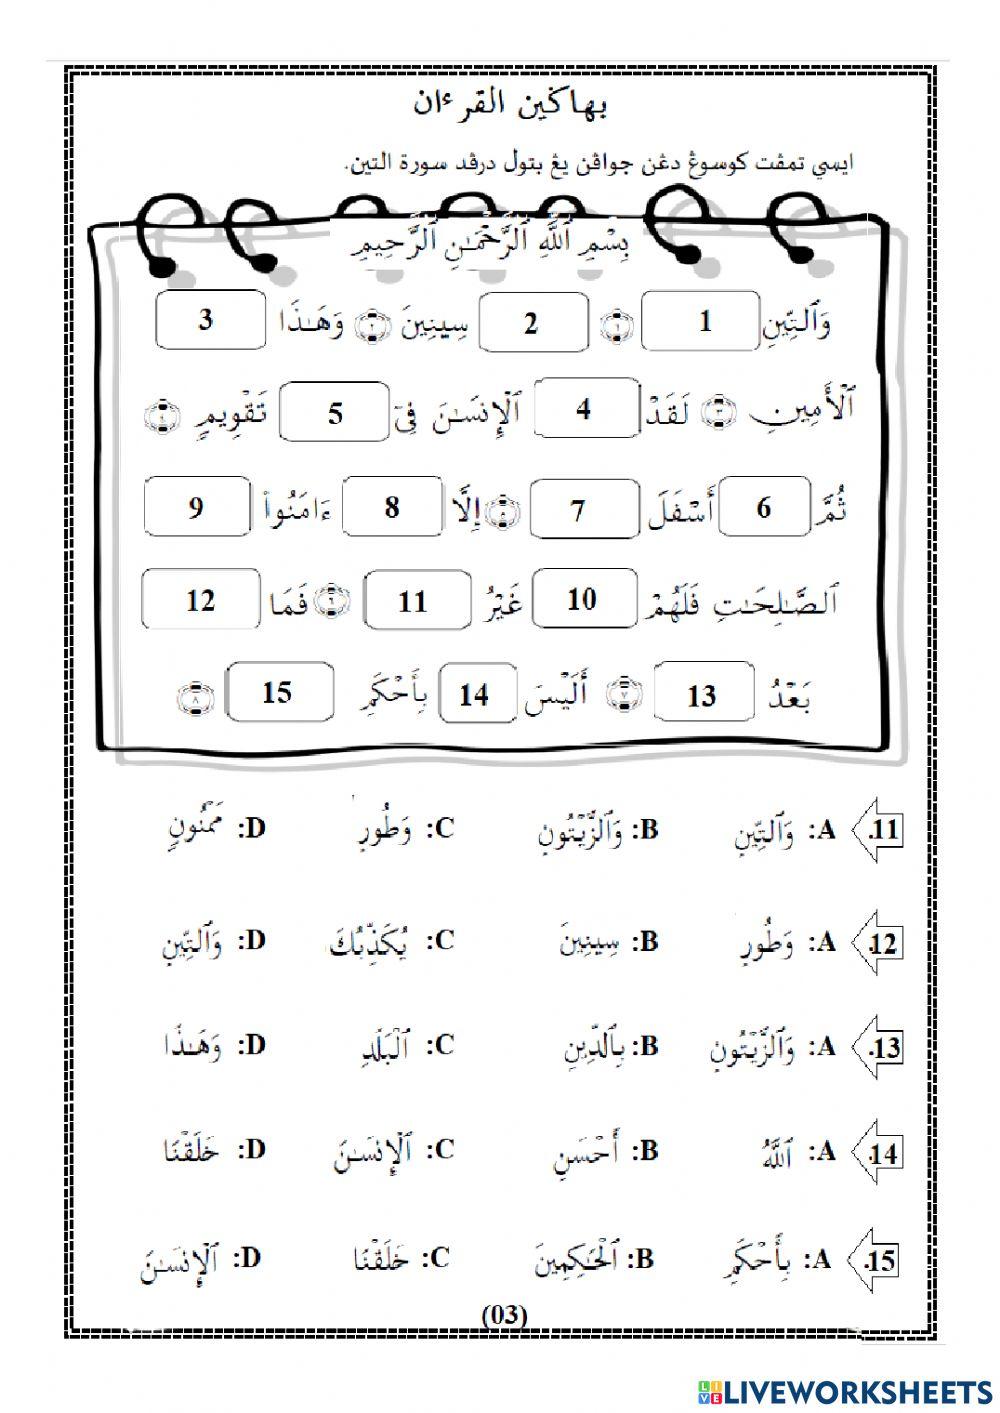 بهاݢين القرءان
ايسي تمڤت كوسوڠ دڠن جواڤن يڠ بتول درڤد سورة التين.
بِسْمِ ٱللَّهِ ٱلرَّحْمَـٰنِ ٱلرَّحِيمِ
وَٱلتِّينِ 1 ١ 2 سِينِينَ ٢ وَهَـٰذَا 3
ٱلْأَمِينِ ٣ لَقَدْ 4 ٱلْإِنسَـٰنَ فِىٓ 5 تَقْوِيمٍ ٤
ثُمَّ 6 أَسْفَلَ 7 ٥ إِلَّا 8 ءَامَنُوا۟ 9
ٱلصَّـٰلِحَـٰتِ فَلَهُمْ 10 غَيْرُ 11 ٦ فَمَا 12
بَعْدُ 13 ٧ أَلَيْسَ 14 بِأَحْكَمِ 15 ٨
11. A: وَٱلتِّينِ B: وَٱلزَّيْتُونِ C: وَطُورِ D: مَمْنُونٍ
12. A: وَطُورِ B: سِينِينَ C: يُكَذِّبُكَ D: وَٱلتِّينِ
13. A: وَٱلزَّيْتُونِ B: بِٱلدِّينِ C: ٱلْبَلَدِ D: وَهَـٰذَا
14. A: ٱللَّهُ B: أَحْسَنِ C: ٱلْإِنسَـٰنَ D: خَلَقْنَا
15. A: بِأَحْكَمِ B: ٱلْحَـٰكِمِينَ C: خَلَقْنَا D: ٱلْإِنسَـٰنَ
(03)
LIVE LIVEWORKSHEETS